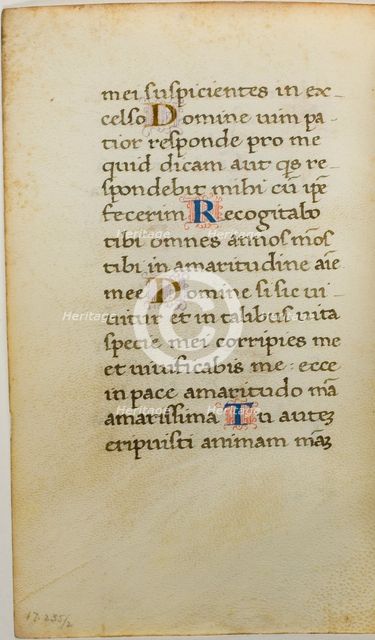 mei suspicientes in ex-
celso Domine uim pa-
tior responde pro me
quid dicam aut qs re-
spondebit mihi cũ ip̃e
fecerim Recogitabo
tibi omnes annos mõs
tibi in amaritudine aĩe
mee Domine si sic ui-
uitur et in talibus uita
spečie mei corripies me
et uiuificabis me: ecce
in pace amaritudo mã
amarissima Tu autez
eripuisti animam mãz
17.235/2
Heritage
Images